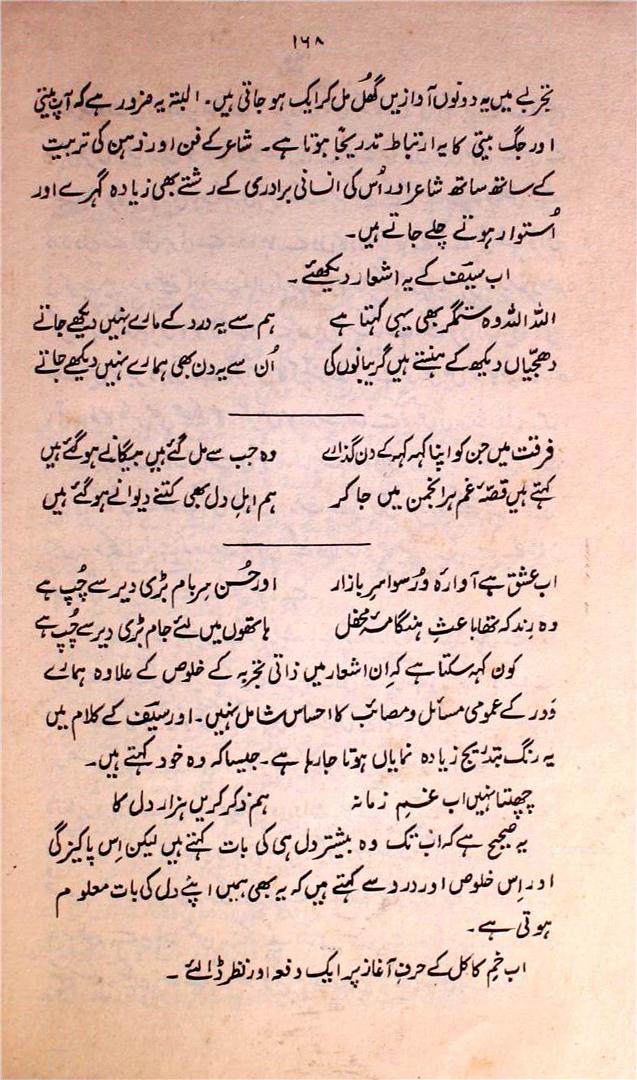 ۱۶۸
تجربے میں یہ دونوں آوازیں گھُل مل کر ایک ہو جاتی ہیں۔ البتہ یہ ضرور ہے کہ آپ بیتی
اور جگ بیتی کا یہ ارتباط تدریجاً ہوتا ہے۔ شاعر کے فن اور ذہن کی تربیت
کے ساتھ ساتھ شاعر اور اُس کی انسانی برادری کے رشتے بھی زیادہ گہرے اور
اُستوار ہوتے چلے جاتے ہیں۔
اب سیف کے یہ اشعار دیکھئے۔
اللہ اللہ وہ ستمگر بھی یہی کہتا ہے ہم سے یہ درد کے مارے نہیں دیکھے جاتے
دھجیاں دیکھ کے ہنستے ہیں گریبانوں کی اُن سے یہ دن بھی ہمارے نہیں دیکھے جاتے
فرقت میں جن کو اپنا کہہ کہہ کے دن گذارے وہ جب سے مل گئے ہیں بیگانے ہو گئے ہیں
کہتے ہیں قصۂ غم ہر انجمن میں جا کر ہم اہلِ دل بھی کتنے دیوانے ہو گئے ہیں
اب عشق ہے آوارہ و رسوا سرِ بازار اور حُسن سرِ بام بڑی دیر سے چُپ ہے
وہ رِند کہ تھا باعثِ ہنگامۂ محفل ہاتھوں میں لئے جام بڑی دیر سے چُپ ہے
کون کہہ سکتا ہے کہ اِن اشعار میں ذاتی تجربہ کے خلوص کے علاوہ ہمارے
دَور کے عمومی مسائل و مصائب کا احساس شامل نہیں۔ اور سیف کے کلام میں
یہ رنگ بتدریج زیادہ نمایاں ہوتا جا رہا ہے۔ جیسا کہ وہ خود کہتے ہیں۔
چھپتا نہیں اب غمِ زمانہ ہم ذکر کریں ہزار دل کا
یہ صحیح ہے کہ اب تک وہ بیشتر دل ہی کی بات کہتے ہیں لیکن اِس پاکیزگی
اور اِس خلوص اور درد سے کہتے ہیں کہ یہ بھی ہمیں اپنے دل کی بات معلوم
ہوتی ہے۔
اب خمِ کاکل کے حرفِ آغاز پر ایک دفعہ اور نظر ڈالئے۔